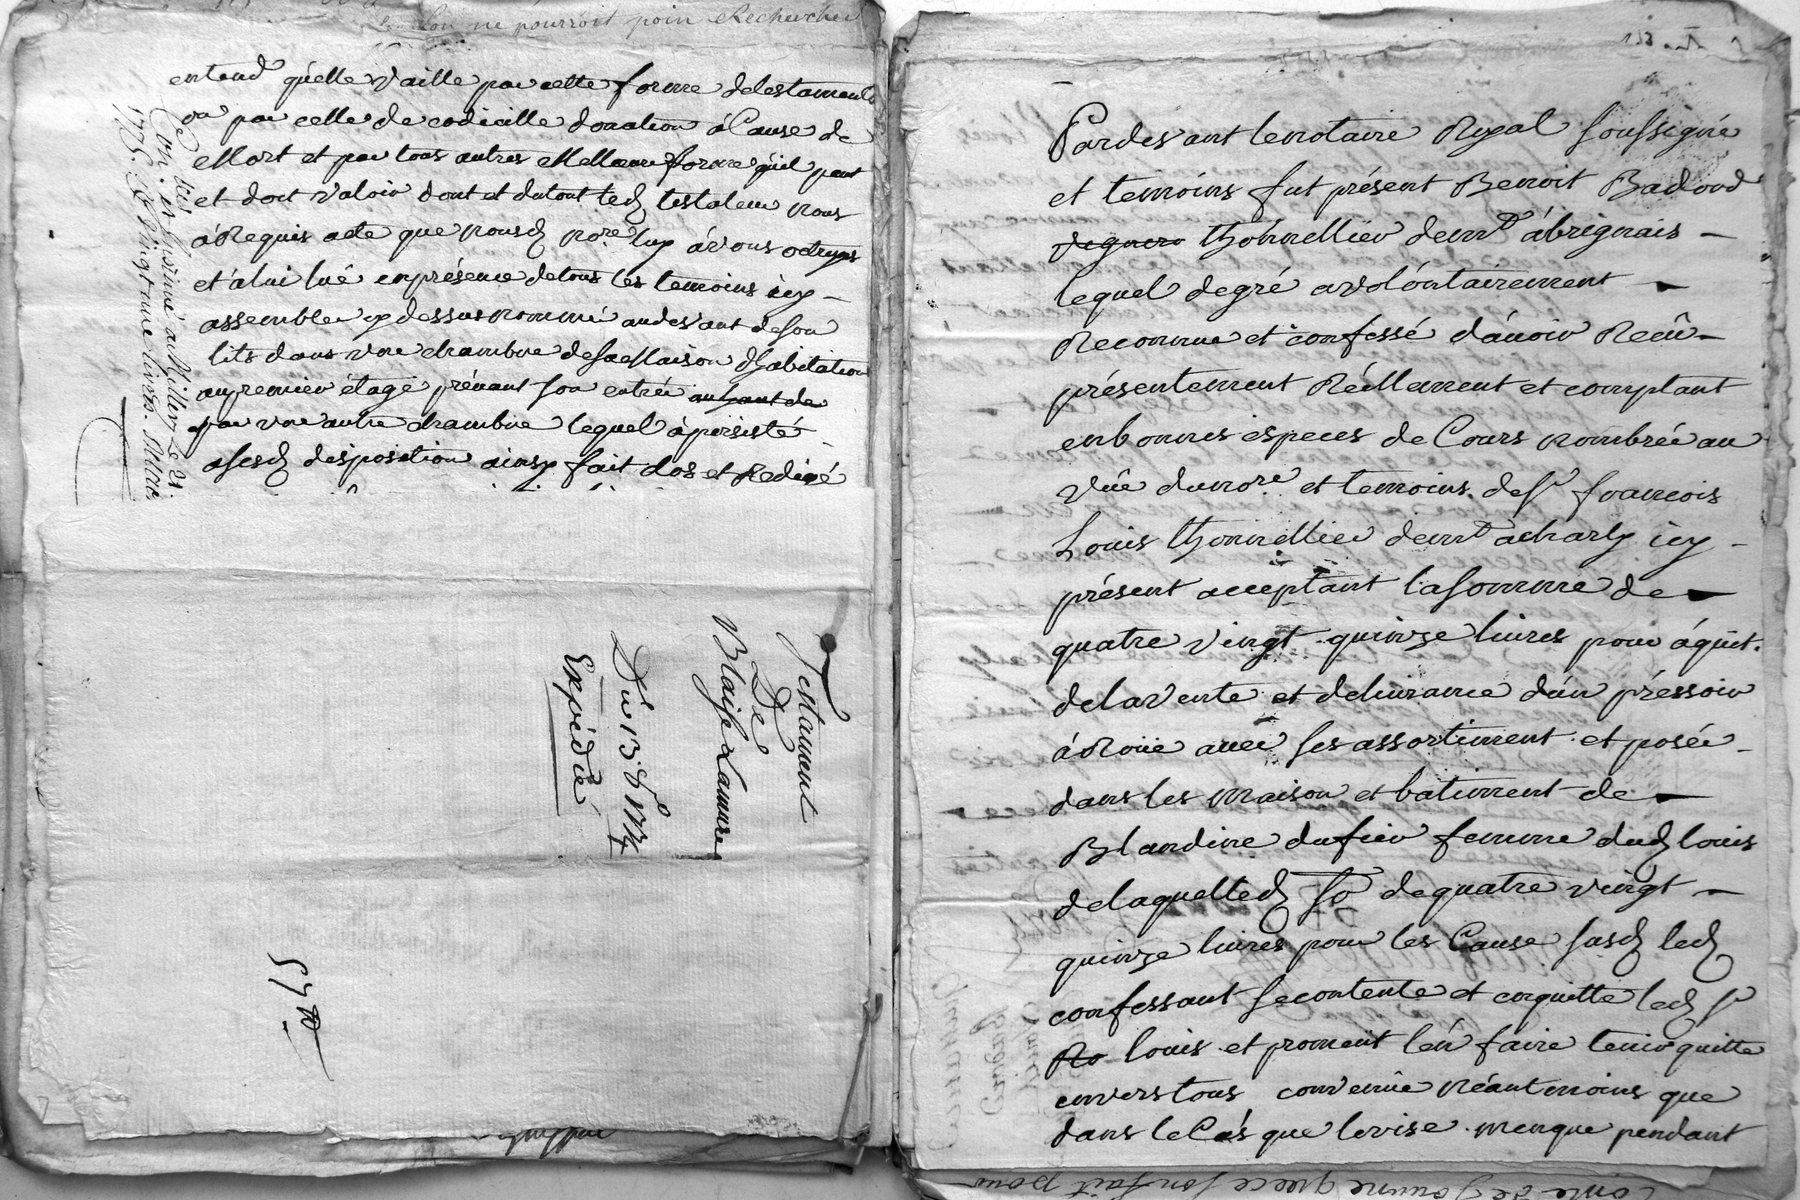 lon ne pourroit poin Rechercher
entend quelle vaille par cette forme de testament
ou par celle de codicille donation à Cause de
Mort et par tous autres Meilleure forme quil peut
et doit valoir dont et dutout led testateur nous
à Requis acte que nousd nore luy avons octroyés
et à lui lué en présence de tous les temoins icy
assemble cy dessus nommé au devant de son
lits dans une chambre de sa Maison d'habitation
au premier étage prénant son entrée au haut de
par une autre chambre lequel à persisté
a sesd disposition ainsy fait clos et Redigé
Con. le et insinué a Millery Le 21.
1775. R. Vingt une livres.
Testament
De
Blaise Lamure
Du 13 8o 1774
Expédié
Pardevant le notaire Royal soussigné
et temoins fut présent Benoit Badoud
vigneron thonnellier demt à brignais
lequel de gré a volontairement
Reconnue et confessé d'avoir Reçû
présentement Réellement et comptant
en bonnes especes de Cours nombrée au
vûe du nore et temoins de sr francois
Louis thonnellier demt a charly icy
présent acceptant la somme de
quatre vingt quinze livres pour áquit.
de la vente et delivrance d'un préssoir
à Roüe avec ses assortiment et posée
dans les maison et batiment de
Blandine dufieu femme dud louis
de laquelled so de quatre vingt
quinze livres pour les Cause susd led
confessant se contente et en quitte led sr
Ro louis et promeut l'én faire tenir quitte
envers tous convenüe Néantmoins que
dans le Cas que la vise menque pendant